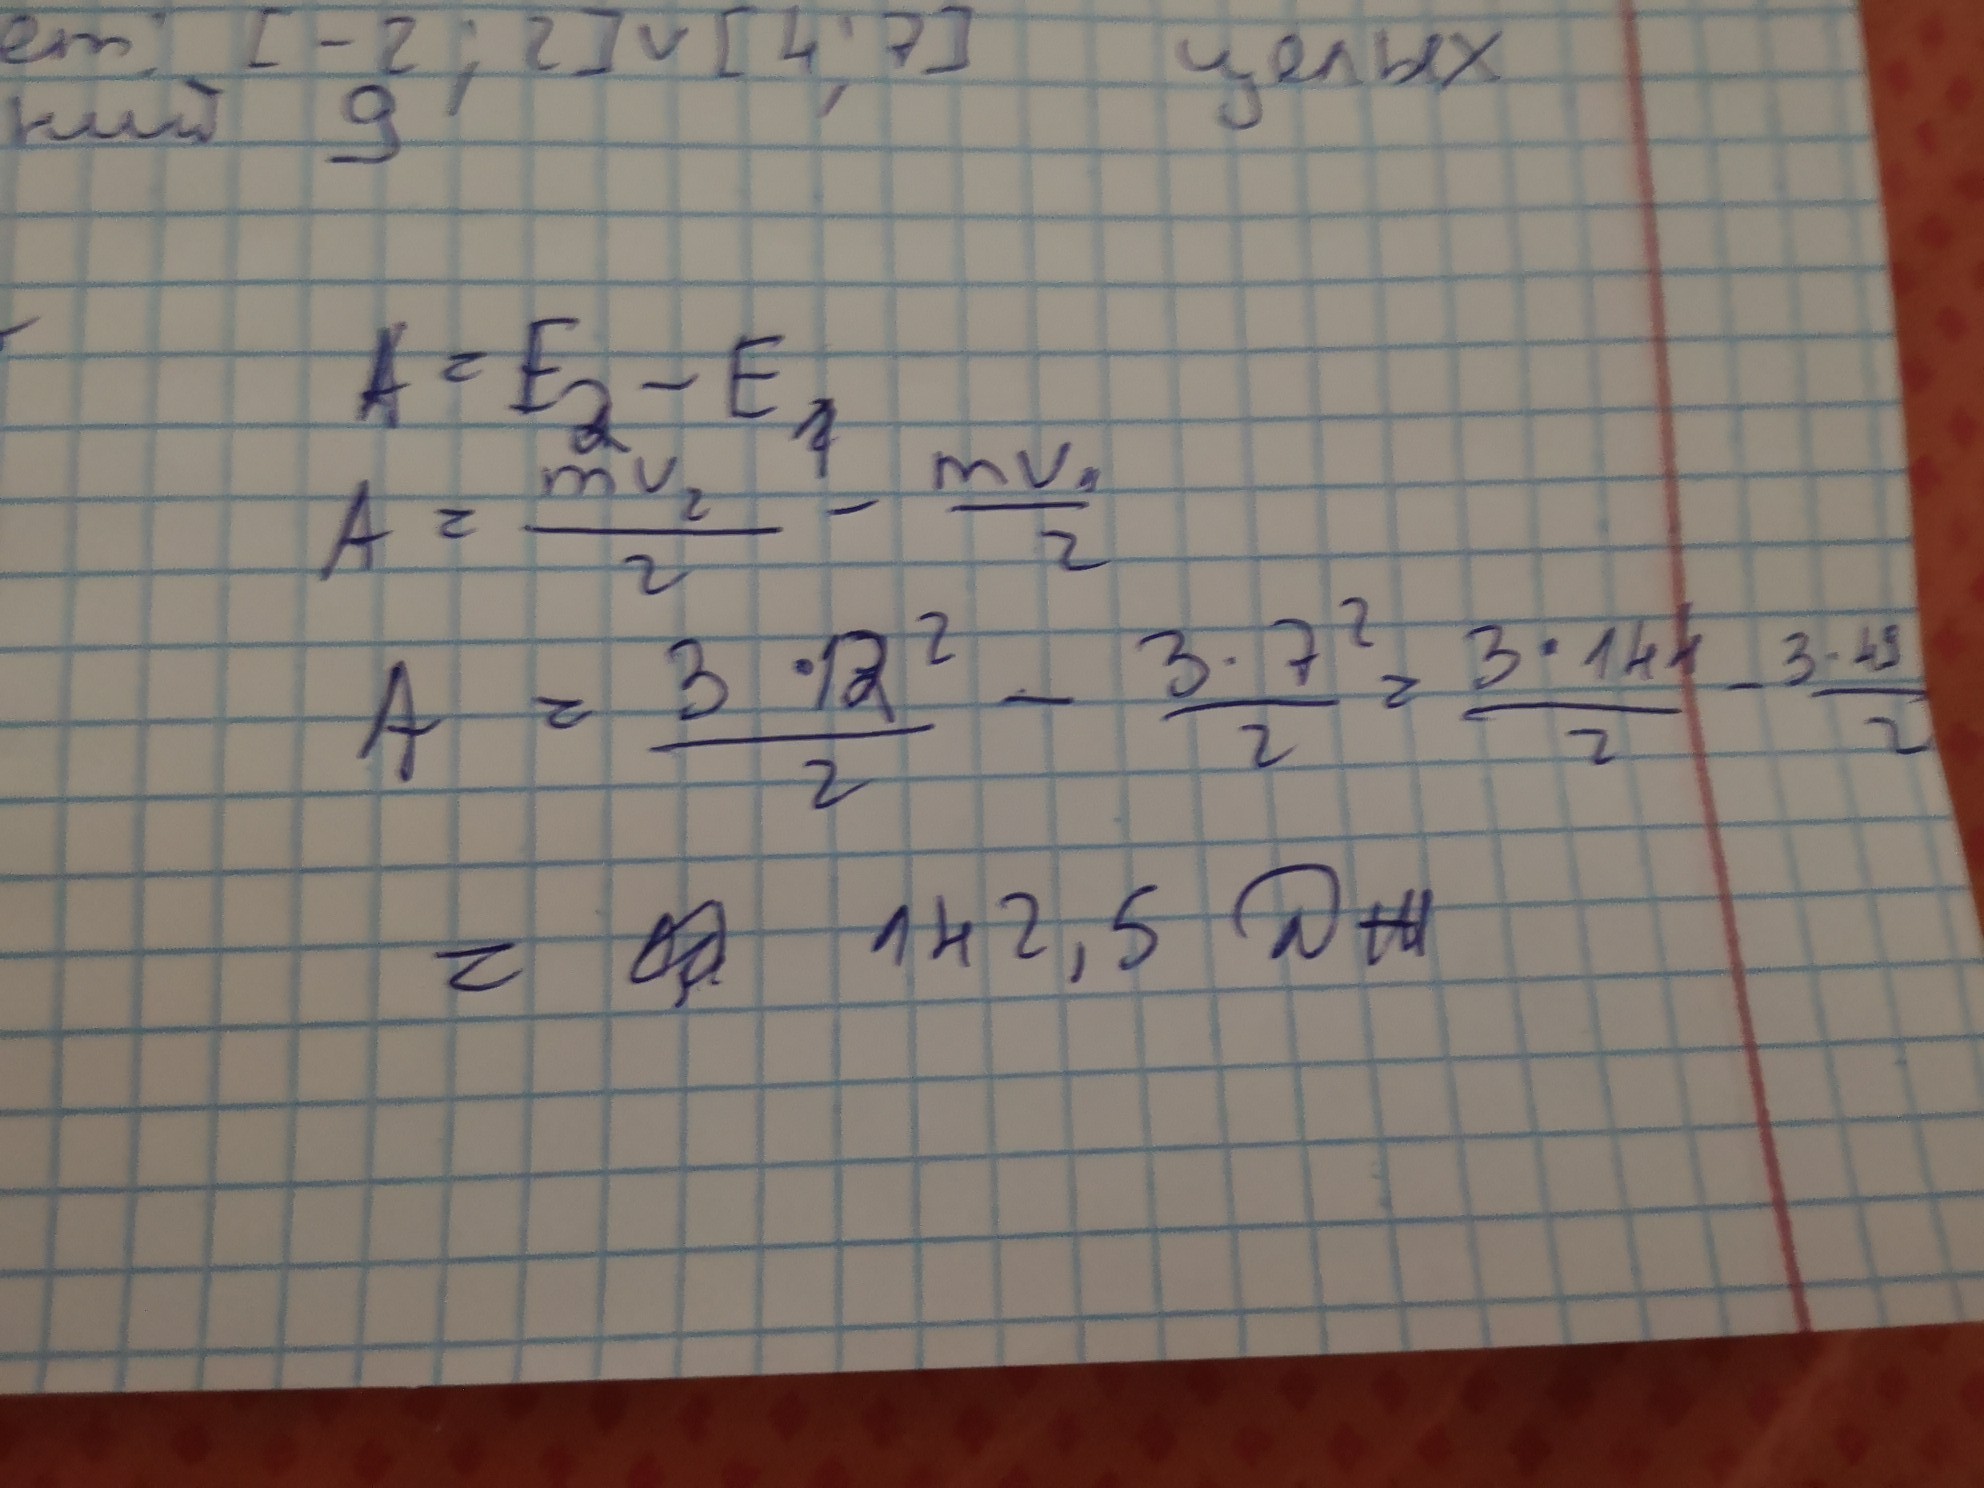 ет: [-2; 2]∨[4; 7] целых
ний 9
A = E₂ - E₁
A = mv₂/2 - mv₁/2
A = 3 · 12²/2 - 3 · 7²/2 = 3 · 144/2 - 3 · 49/2
= 142,5 Дж